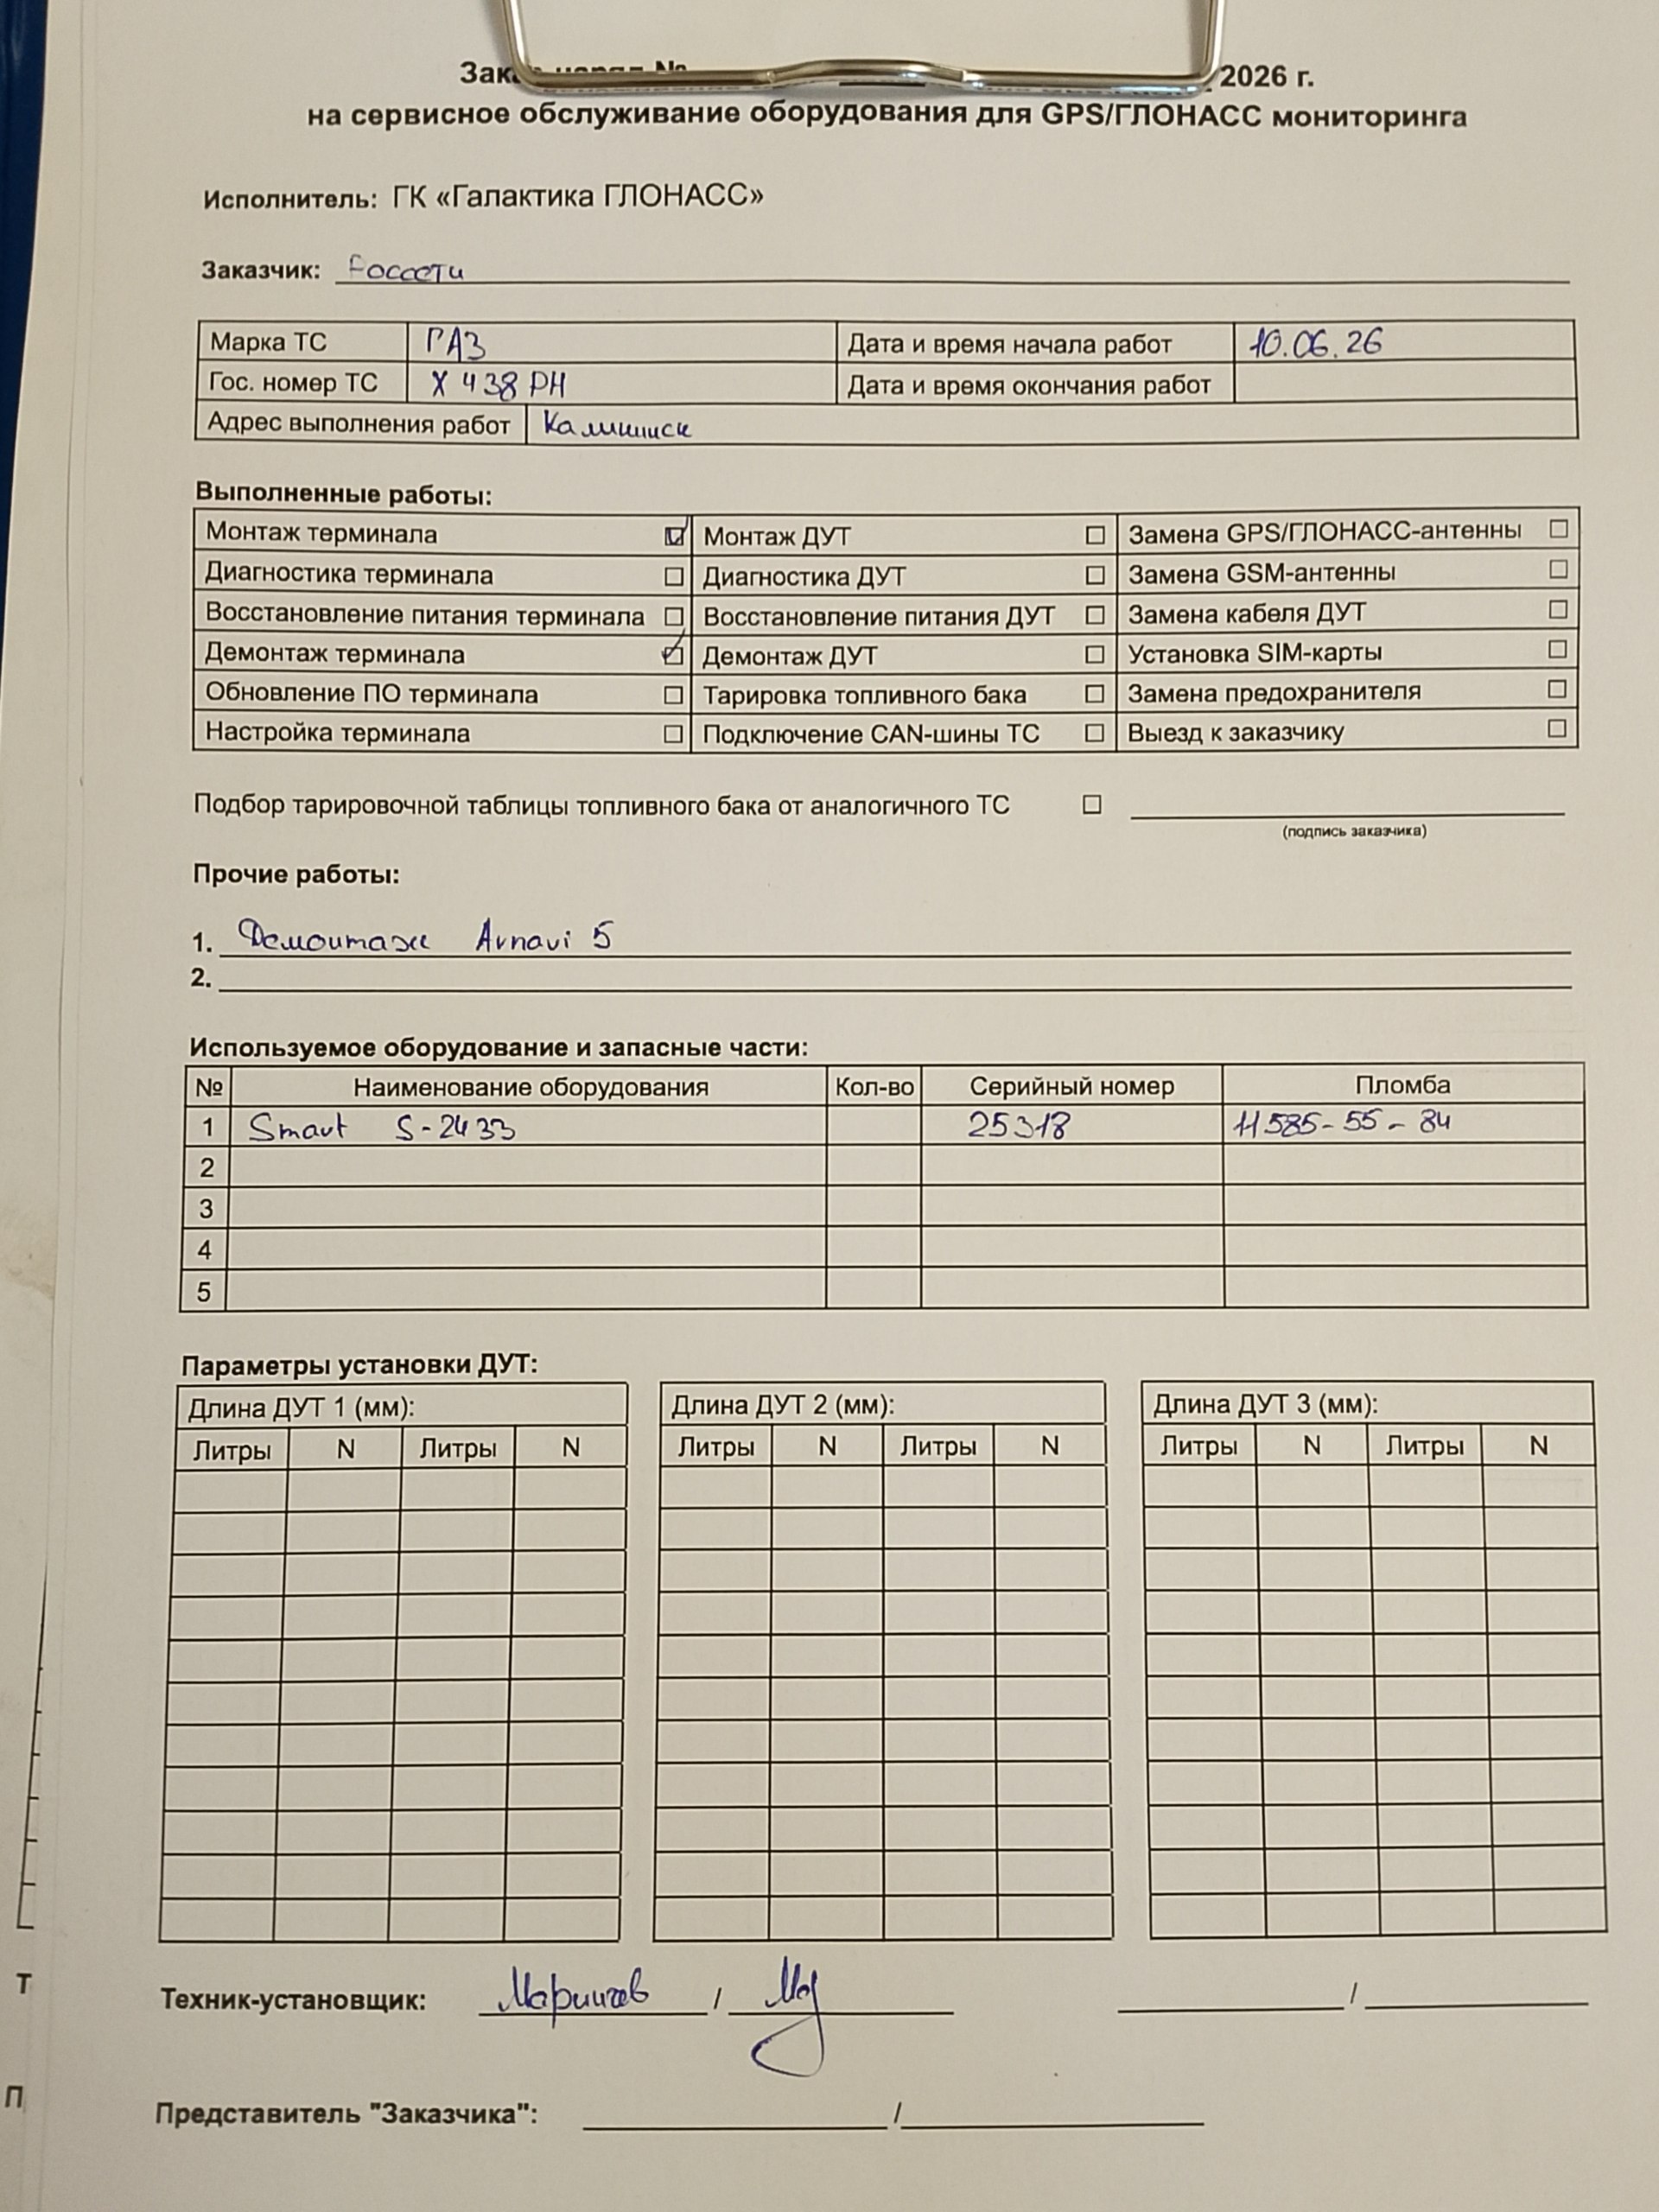 2026 г.
на сервисное обслуживание оборудования для GPS/ГЛОНАСС мониторинга
Исполнитель: ГК «Галактика ГЛОНАСС»
Заказчик: Россети
Марка ТС ГАЗ Дата и время начала работ 10.06.26
Гос. номер ТС Х 438 РН Дата и время окончания работ
Адрес выполнения работ Калининск
Выполненные работы:
Монтаж терминала ☑ Монтаж ДУТ ☐ Замена GPS/ГЛОНАСС-антенны ☐
Диагностика терминала ☐ Диагностика ДУТ ☐ Замена GSM-антенны ☐
Восстановление питания терминала ☐ Восстановление питания ДУТ ☐ Замена кабеля ДУТ ☐
Демонтаж терминала ☑ Демонтаж ДУТ ☐ Установка SIM-карты ☐
Обновление ПО терминала ☐ Тарировка топливного бака ☐ Замена предохранителя ☐
Настройка терминала ☐ Подключение CAN-шины ТС ☐ Выезд к заказчику ☐
Подбор тарировочной таблицы топливного бака от аналогичного ТС ☐
(подпись заказчика)
Прочие работы:
1. Демонтаж Arnavi 5
2.
Используемое оборудование и запасные части:
№ Наименование оборудования Кол-во Серийный номер Пломба
1 Smart S-2433 25318 11585-55-84
2
3
4
5
Параметры установки ДУТ:
Длина ДУТ 1 (мм): Длина ДУТ 2 (мм): Длина ДУТ 3 (мм):
Литры N Литры N Литры N Литры N Литры N Литры N
Техник-установщик: / /
Представитель "Заказчика": /